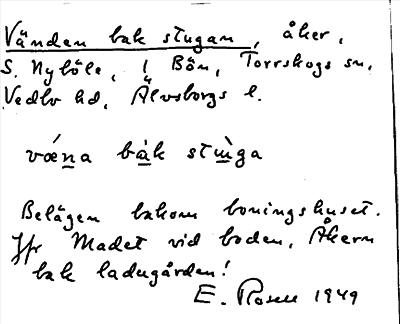 Vänden bak stugan, åker,
S. Nyböle, 1 Bön, Torrskogs sn,
Vedbo hd, Älvsborgs l.
vǽna bàk stuga
Belägen bakom boningshuset.
Jfr Madet vid boden, Åkern
bak ladugården!
E. Rosell 1949